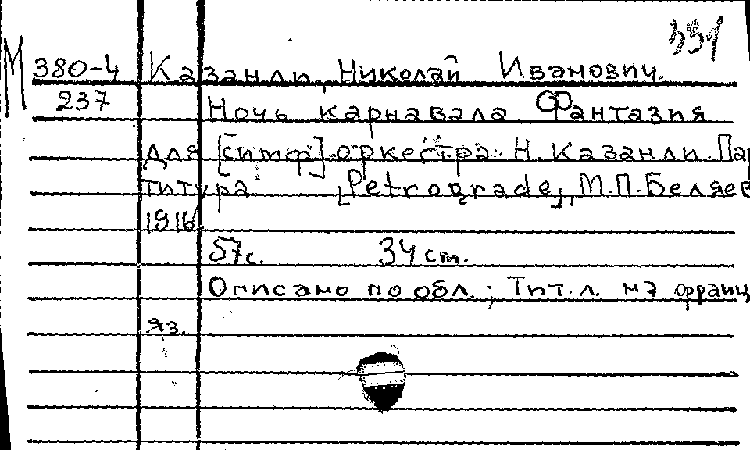 331
М 380-4 Казанли, Николай Иванович.
237 Ночь карнавала Фантазия
для [симф] оркестра. Н. Казанли. Пар
титура [Petrograde], М.П. Беляев
1916
57с. 34 см.
Описано по обл.; Тит. л. на франц
яз.